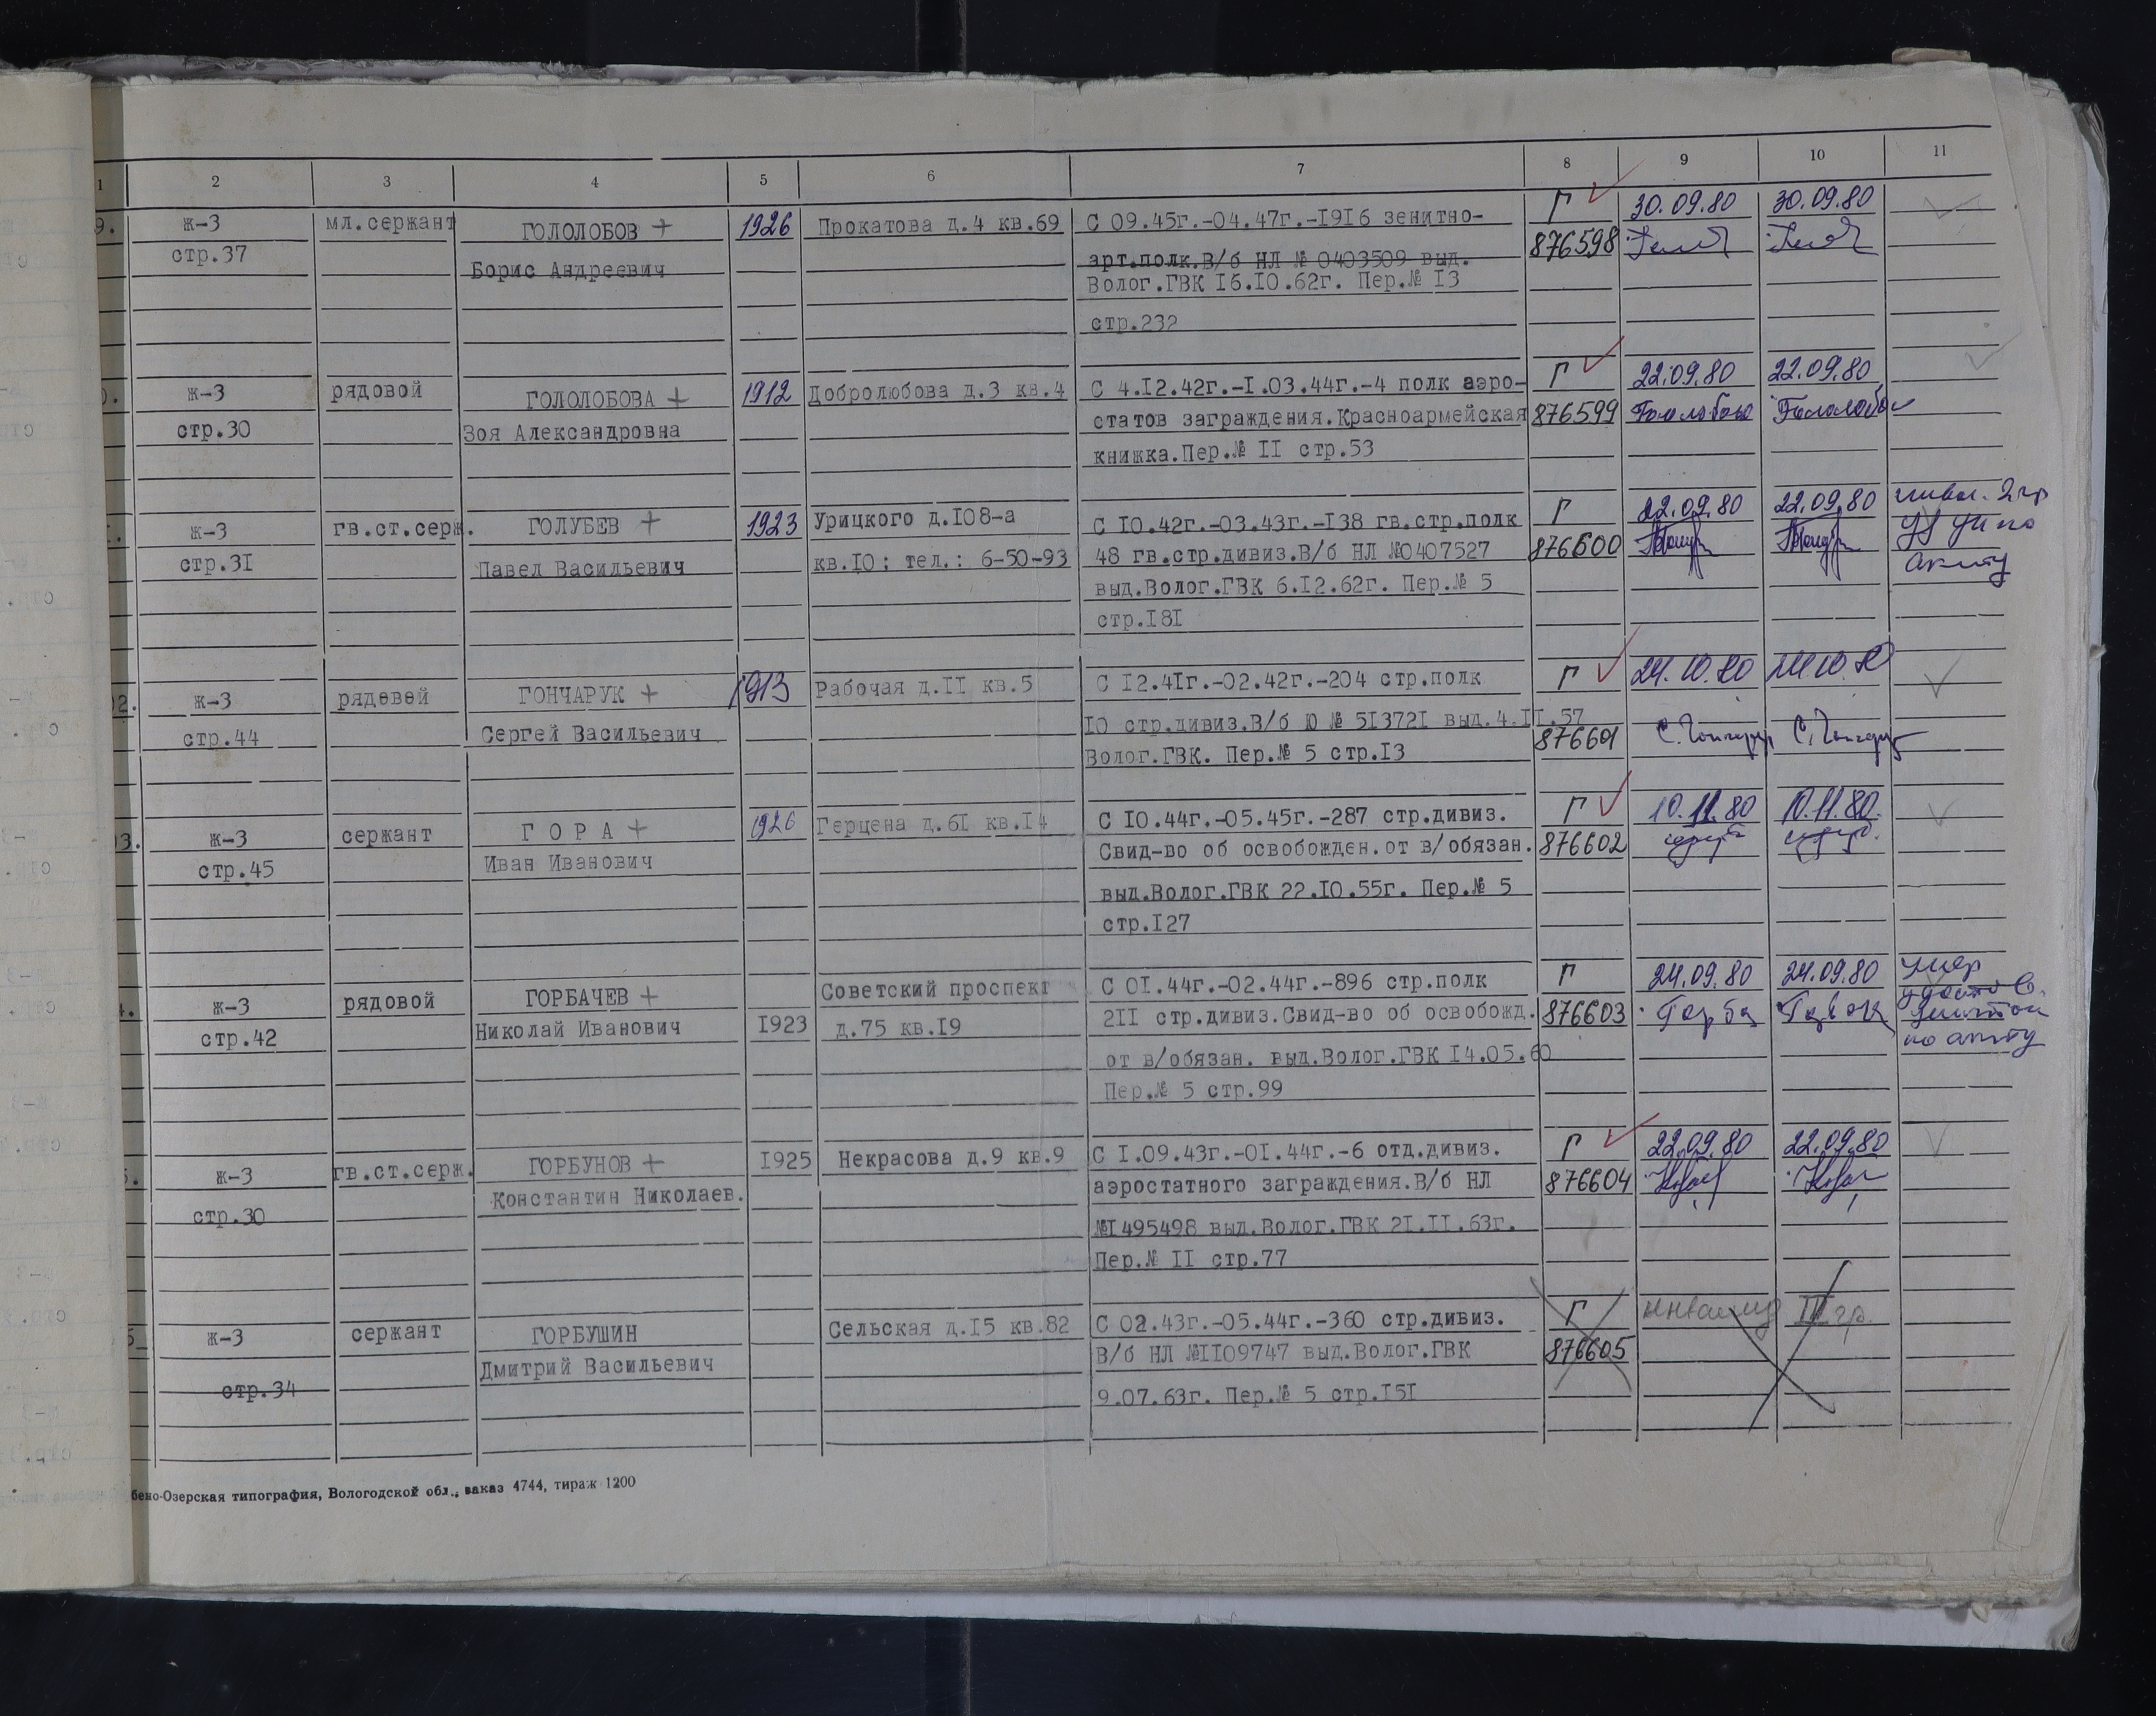 1 2 3 4 5 6 7 8 9 10 11
9. ж-3 мл.сержант ГОЛОЛОБОВ + 1926 Прокатова д.4 кв.69 С 09.45г.-04.47г.-1916 зенитно- Г 30.09.80 30.09.80
стр.37 Борис Андреевич арт.полк.В/б НЛ № 0403509 выд. 876598
Волог.ГВК 16.10.62г. Пер.№ 13
стр.232
ж-3 рядовой ГОЛОЛОБОВА + 1912 Добролюбова д.3 кв.4 С 4.12.42г.-1.03.44г.-4 полк аэро- Г 22.09.80 22.09.80
стр.30 Зоя Александровна статов заграждения.Красноармейская 876599
книжка.Пер.№ 11 стр.53
ж-3 гв.ст.серж. ГОЛУБЕВ + 1923 Урицкого д.108-а С 10.42г.-03.43г.-138 гв.стр.полк Г 22.09.80 22.09.80 инвал. 2 гр
стр.31 Павел Васильевич кв.10; тел.: 6-50-93 48 гв.стр.дивиз.В/б НЛ №0407527 876600 по
выд.Волог.ГВК 6.12.62г. Пер.№ 5 акту
стр.181
02. ж-3 рядовой ГОНЧАРУК + 1913 Рабочая д.11 кв.5 С 12.41г.-02.42г.-204 стр.полк Г 24.10.80 24.10.80
стр.44 Сергей Васильевич 10 стр.дивиз.В/б Ю № 513721 выд.4.11.57 876601
Волог.ГВК. Пер.№ 5 стр.13
03. ж-3 сержант Г О Р А + 1926 Герцена д.61 кв.14 С 10.44г.-05.45г.-287 стр.дивиз. Г 10.11.80 10.11.80.
стр.45 Иван Иванович Свид-во об освобожден.от в/обязан. 876602
выд.Волог.ГВК 22.10.55г. Пер.№ 5
стр.127
4. ж-3 рядовой ГОРБАЧЕВ + Советский проспект С 01.44г.-02.44г.-896 стр.полк Г 24.09.80 24.09.80 умер
стр.42 Николай Иванович 1923 д.75 кв.19 211 стр.дивиз.Свид-во об освобожд. 876603
от в/обязан. выд.Волог.ГВК 14.05.60 по акту
Пер.№ 5 стр.99
5. ж-3 гв.ст.серж. ГОРБУНОВ + 1925 Некрасова д.9 кв.9 С 1.09.43г.-01.44г.-6 отд.дивиз. Г 22.09.80 22.09.80
стр.30 Константин Николаев. аэростатного заграждения.В/б НЛ 876604
№1495498 выд.Волог.ГВК 21.11.63г.
Пер.№ 11 стр.77
ж-3 сержант ГОРБУШИН Сельская д.15 кв.82 С 02.43г.-05.44г.-360 стр.дивиз. Г инвалид гр.
стр.34 Дмитрий Васильевич В/б НЛ №1109747 выд.Волог.ГВК 876605
9.07.63г. Пер.№ 5 стр.151
бено-Озерская типография, Вологодской обл., заказ 4744, тираж 1200